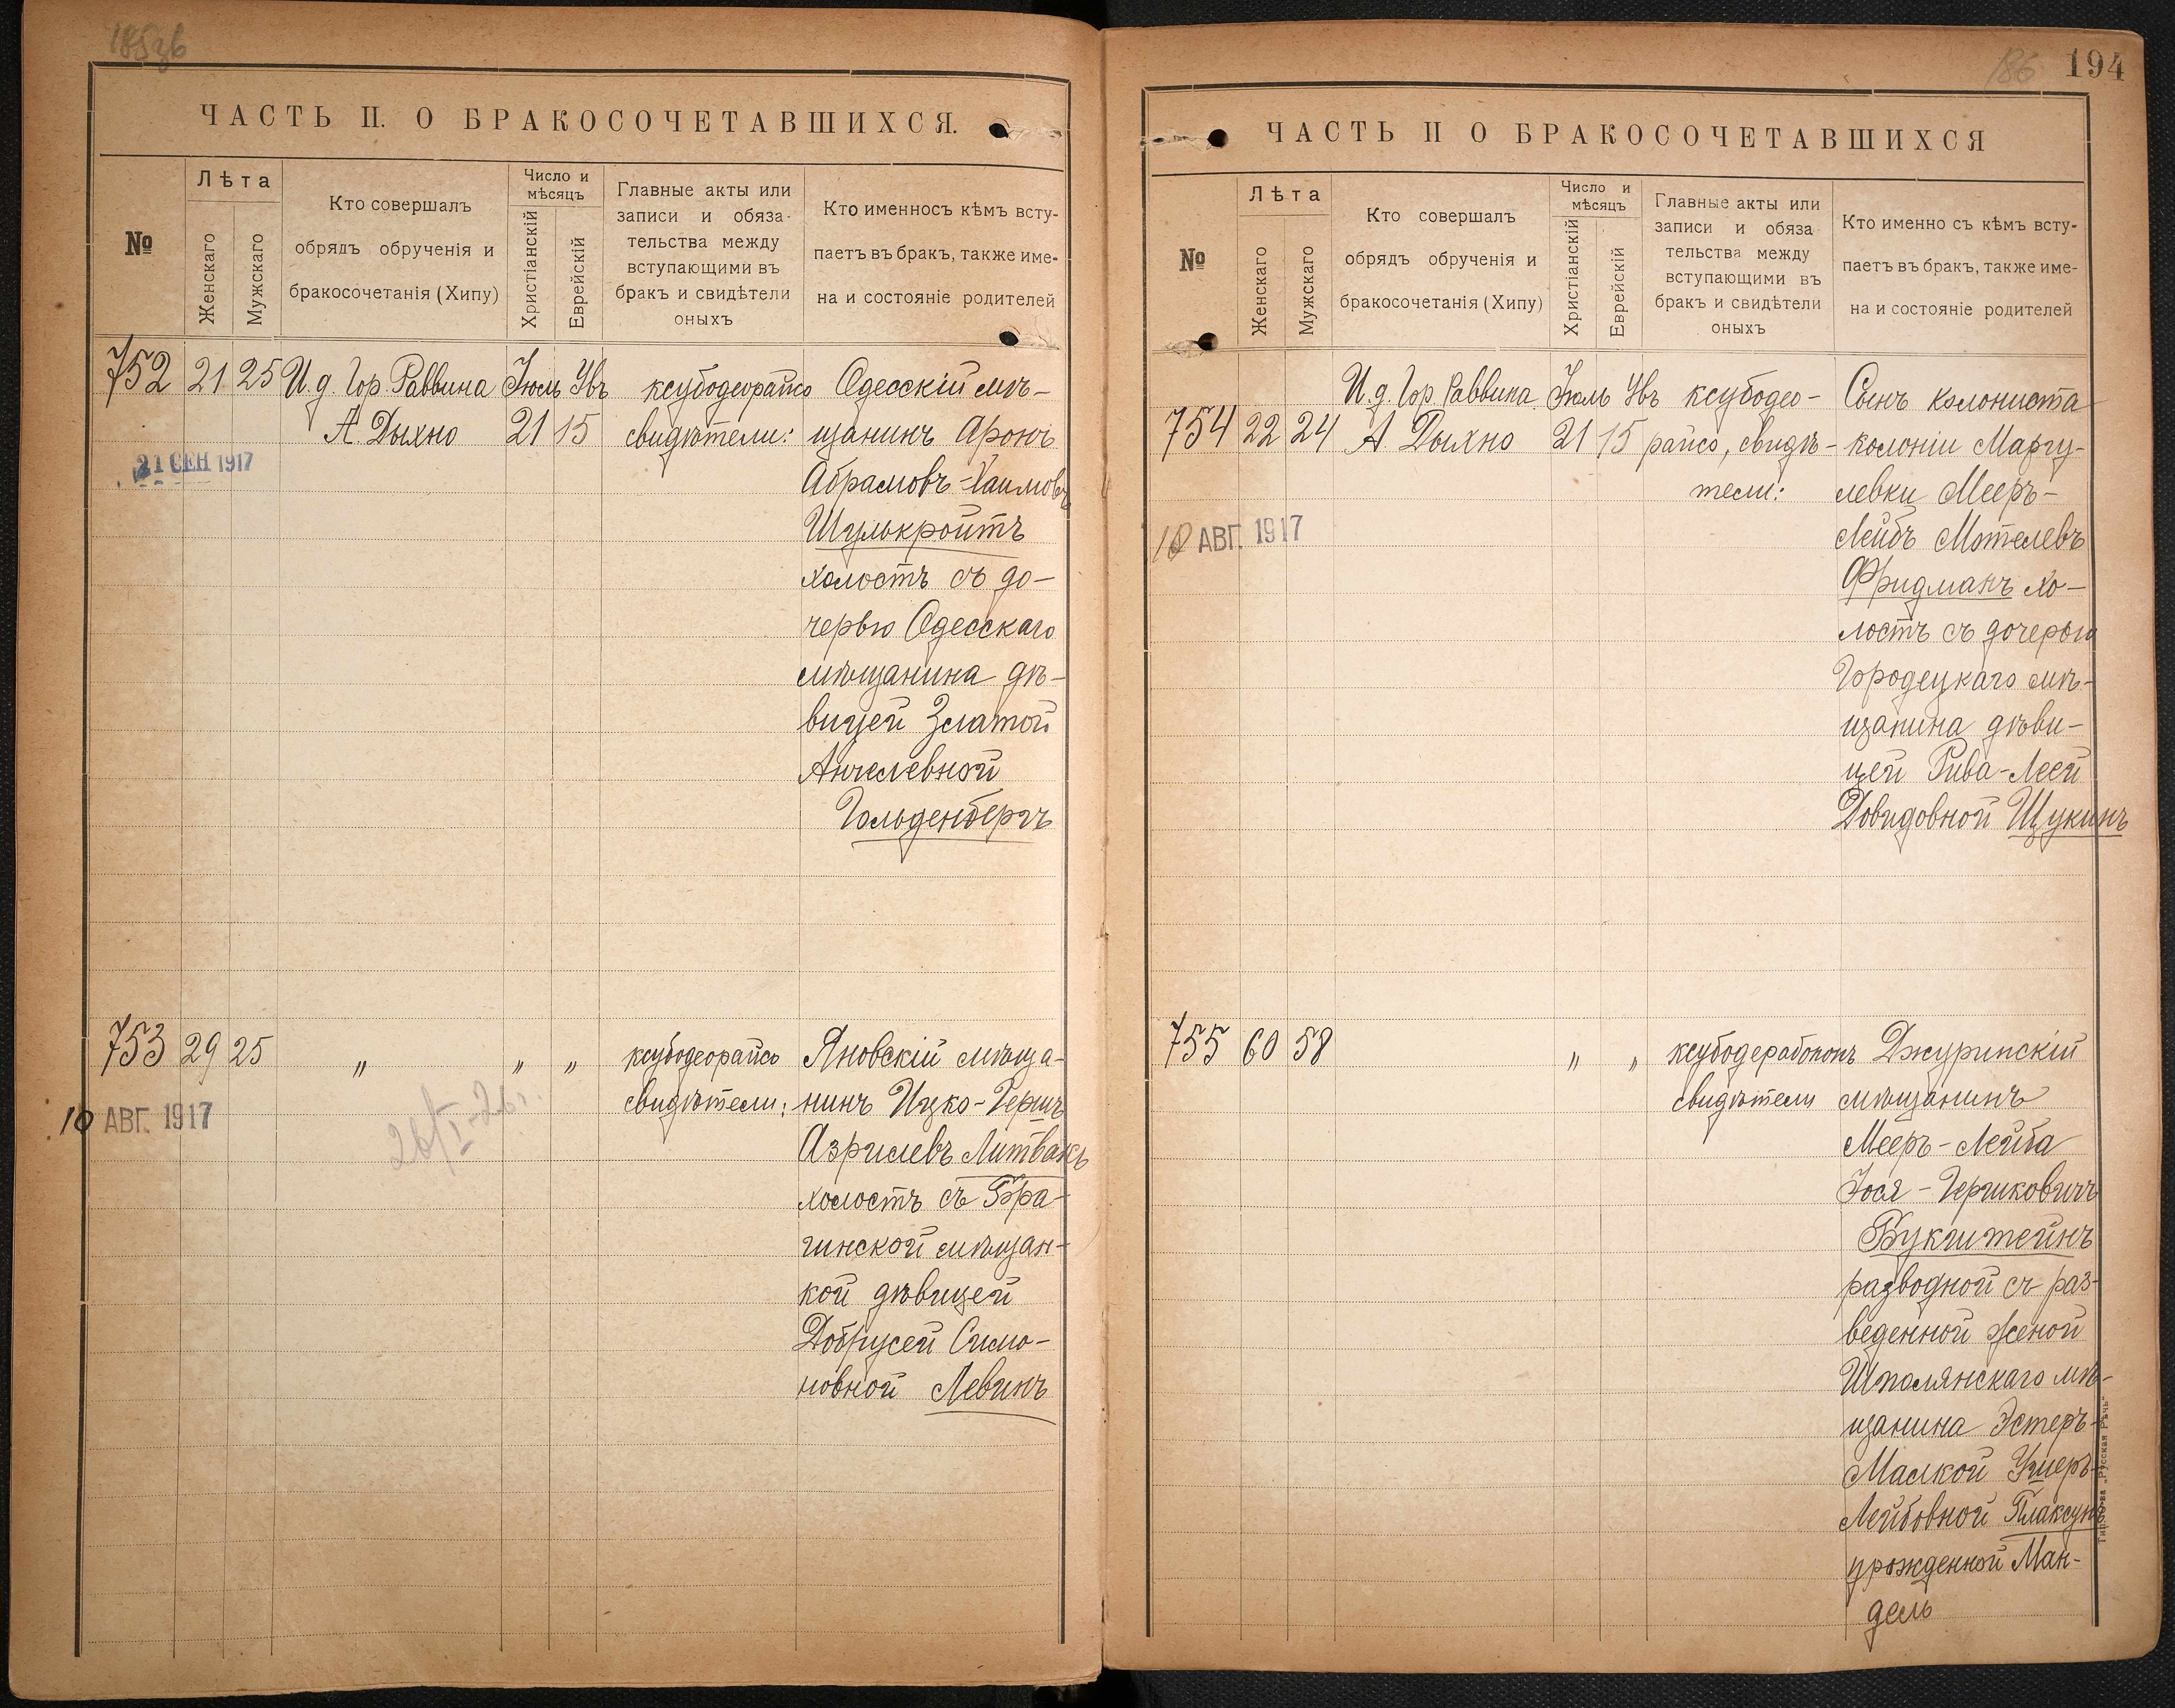 185 зв
ЧАСТЬ II. О БРАКОСОЧЕТАВШИХСЯ.
№
Лѣта
Женскаго
Мужскаго
Кто совершалъ
обрядъ обрученія и
бракосочетанія (Хипу)
Число и
мѣсяцъ
Христіанскій
Еврейскій
Главные акты или
записи и обяза-
тельства между
вступающими въ
бракъ и свидѣтели
оныхъ
Кто именносъ кѣмъ всту-
паетъ въ бракъ, также име-
на и состояніе родителей
752 21 25 И.д. Гор. Раввина Іюль Увъ ксубодеорайсо Одесскій мѣ-
А. Дыхно 21 15 свидѣтели: щанинъ Аронъ
21 СЕН 1917
Абрамовъ-Хаимовъ
Шулькройтъ
холостъ съ до-
черью Одесскаго
мѣщанина дѣ-
вицей Златой
Анчелевной
Гольденбергъ
753 29 25 " " " ксубодеорайсо Яновскій мѣща-
свидѣтели: нинъ Ицко-Гершъ
10 АВГ. 1917
Азрилевъ Литвакъ
холостъ съ Бра-
гинской мѣщан-
кой дѣвицей
Добрусей Симо-
новной Левинъ
186 194
ЧАСТЬ II О БРАКОСОЧЕТАВШИХСЯ
№
Лѣта
Женскаго
Мужскаго
Кто совершалъ
обрядъ обрученія и
бракосочетанія (Хипу)
Число и
мѣсяцъ
Христіанскій
Еврейскій
Главные акты или
записи и обяза
тельства между
вступающими въ
бракъ и свидѣтели
оныхъ
Кто именно съ кѣмъ всту-
паетъ въ бракъ, также име-
на и состояніе родителей
И.д. Гор Раввина Іюль Увъ ксубодео- Сынъ колониста
754 22 24 А Дыхно 21 15 райсо, свидѣ- колоніи Маргу-
тели: левки Мееръ-
10 АВГ. 1917
Лейбъ Мотелевъ
Фридманъ хо-
лостъ съ дочерью
Городецкаго мѣ-
щанина дѣви-
цей Рива-Леей
Довидовной Щукинъ
755 60 58 " " Джуринскій
свидѣтели мѣщанинъ
Мееръ-Лейба
Іося-Гершковичъ
Букштейнъ
разводной съ раз-
веденной женой
Шполянскаго мѣ-
щанина Эстеръ-
Малкой Ушеръ-
Лейбовной Плаксунъ
урожденной Ман-
дель
„Русская Рѣчь“